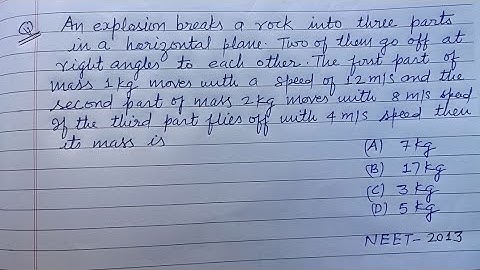 Q An explosion breaks a rock into three parts
in a horizontal plane. Two of them go off at
right angles to each other. The first part of
mass 1 kg moves with a speed of 12 m/s and the
second part of mass 2 kg moves with 8 m/s speed
If the third part flies off with 4 m/s speed then
its mass is
(A) 7 kg
(B) 17 kg
(C) 3 kg
(D) 5 kg
NEET- 2013